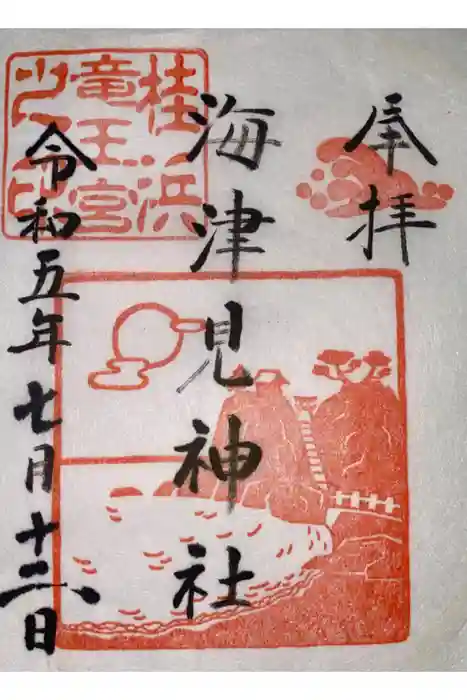 奉拝
海津見神社
令和五年七月十二日
桂浜
竜王宮
之印